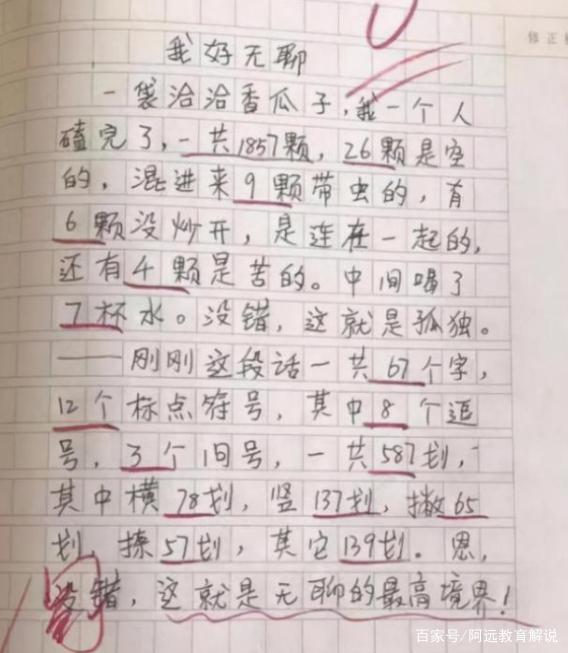 修正
我好无聊
一袋洽洽香瓜子,我一个人
磕完了,一共1857颗,26颗是空
的,混进来9颗带虫的,有
6颗没炒开,是连在一起的,
还有4颗是苦的。中间喝了
7杯水。没错,这就是孤独。
——刚刚这段话一共67个字,
12个标点符号,其中8个逗
号,3个问号,一共587划,
其中横78划,竖137划,撇65
划,捺57划,其它139划。恩,
没错,这就是无聊的最高境界!
百家号/阿远教育解说